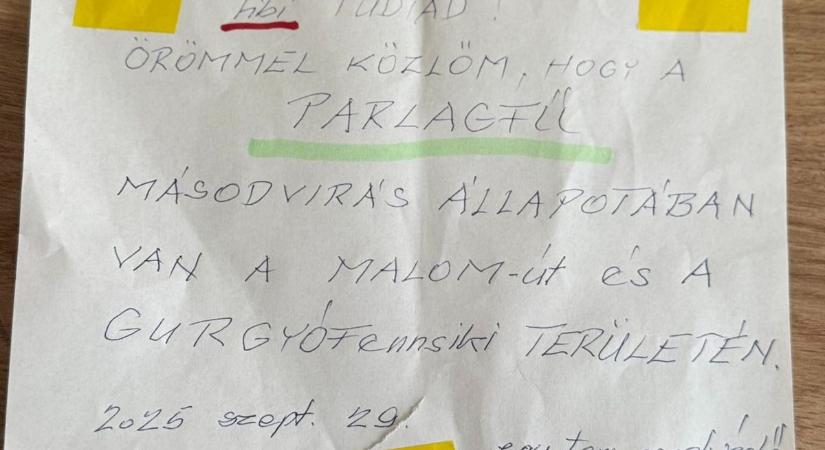 hbi TUDJAD!
ÖRÖMMEL KÖZLÖM, HOGY A
PARLAGFŰ
MÁSODVIRÁS ÁLLAPOTÁBAN
VAN A MALOM-út és A
GURGYÓFennsiki TERÜLETÉN.
2025 szept. 29.
egy